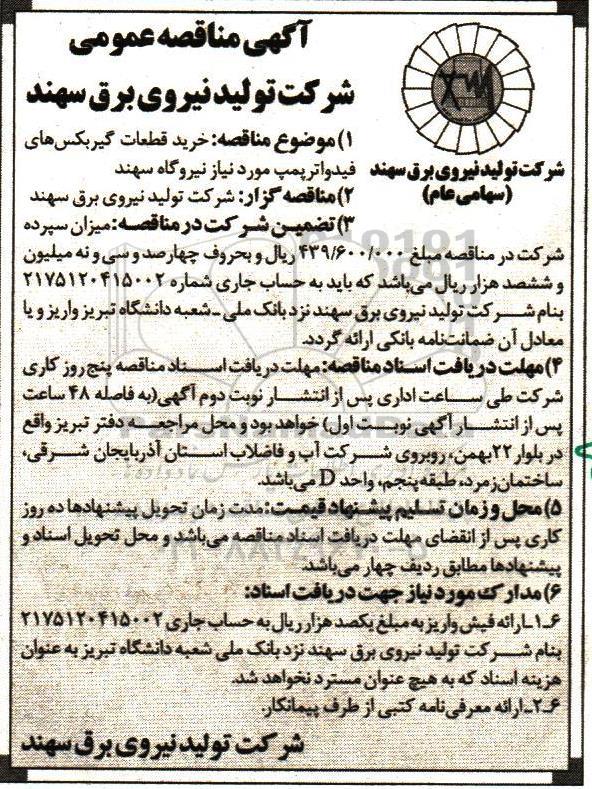 آگهی مناقصه عمومی
شرکت تولید نیروی برق سهند
شرکت تولید نیروی برق سهند
(سهامی عام)
۱) موضوع مناقصه: خرید قطعات گیربکس‌های
فیدواتر پمپ مورد نیاز نیروگاه سهند
۲) مناقصه گزار: شرکت تولید نیروی برق سهند
۳) تضمین شرکت در مناقصه: میزان سپرده
شرکت در مناقصه مبلغ ۴۳۹/۶۰۰/۰۰۰ ریال و بحروف چهارصد و سی و نه میلیون
و ششصد هزار ریال می‌باشد که باید به حساب جاری شماره ۲۱۷۵۱۲۰۴۱۵۰۰۲
بنام شرکت تولید نیروی برق سهند نزد بانک ملی ـ شعبه دانشگاه تبریز واریز و یا
معادل آن ضمانت‌نامه بانکی ارائه گردد.
۴) مهلت دریافت اسناد مناقصه: مهلت دریافت اسناد مناقصه پنج روز کاری
شرکت طی ساعت اداری پس از انتشار نوبت دوم آگهی (به فاصله ۴۸ ساعت
پس از انتشار آگهی نوبت اول) خواهد بود و محل مراجعه دفتر تبریز واقع
در بلوار ۲۲بهمن، روبروی شرکت آب و فاضلاب استان آذربایجان شرقی،
ساختمان زمرد، طبقه پنجم، واحد D می‌باشد.
۵) محل و زمان تسلیم پیشنهاد قیمت: مدت زمان تحویل پیشنهادها ده روز
کاری پس از انقضای مهلت دریافت اسناد مناقصه می‌باشد و محل تحویل اسناد و
پیشنهادها مطابق ردیف چهار می‌باشد.
۶) مدارک مورد نیاز جهت دریافت اسناد:
۶ـ۱ـ ارائه فیش واریز به مبلغ یکصد هزار ریال به حساب جاری ۲۱۷۵۱۲۰۴۱۵۰۰۲
بنام شرکت تولید نیروی برق سهند نزد بانک ملی شعبه دانشگاه تبریز به عنوان
هزینه اسناد که به هیچ عنوان مسترد نخواهد شد.
۶ـ۲ـ ارائه معرفی‌نامه کتبی از طرف پیمانکار.
شرکت تولید نیروی برق سهند